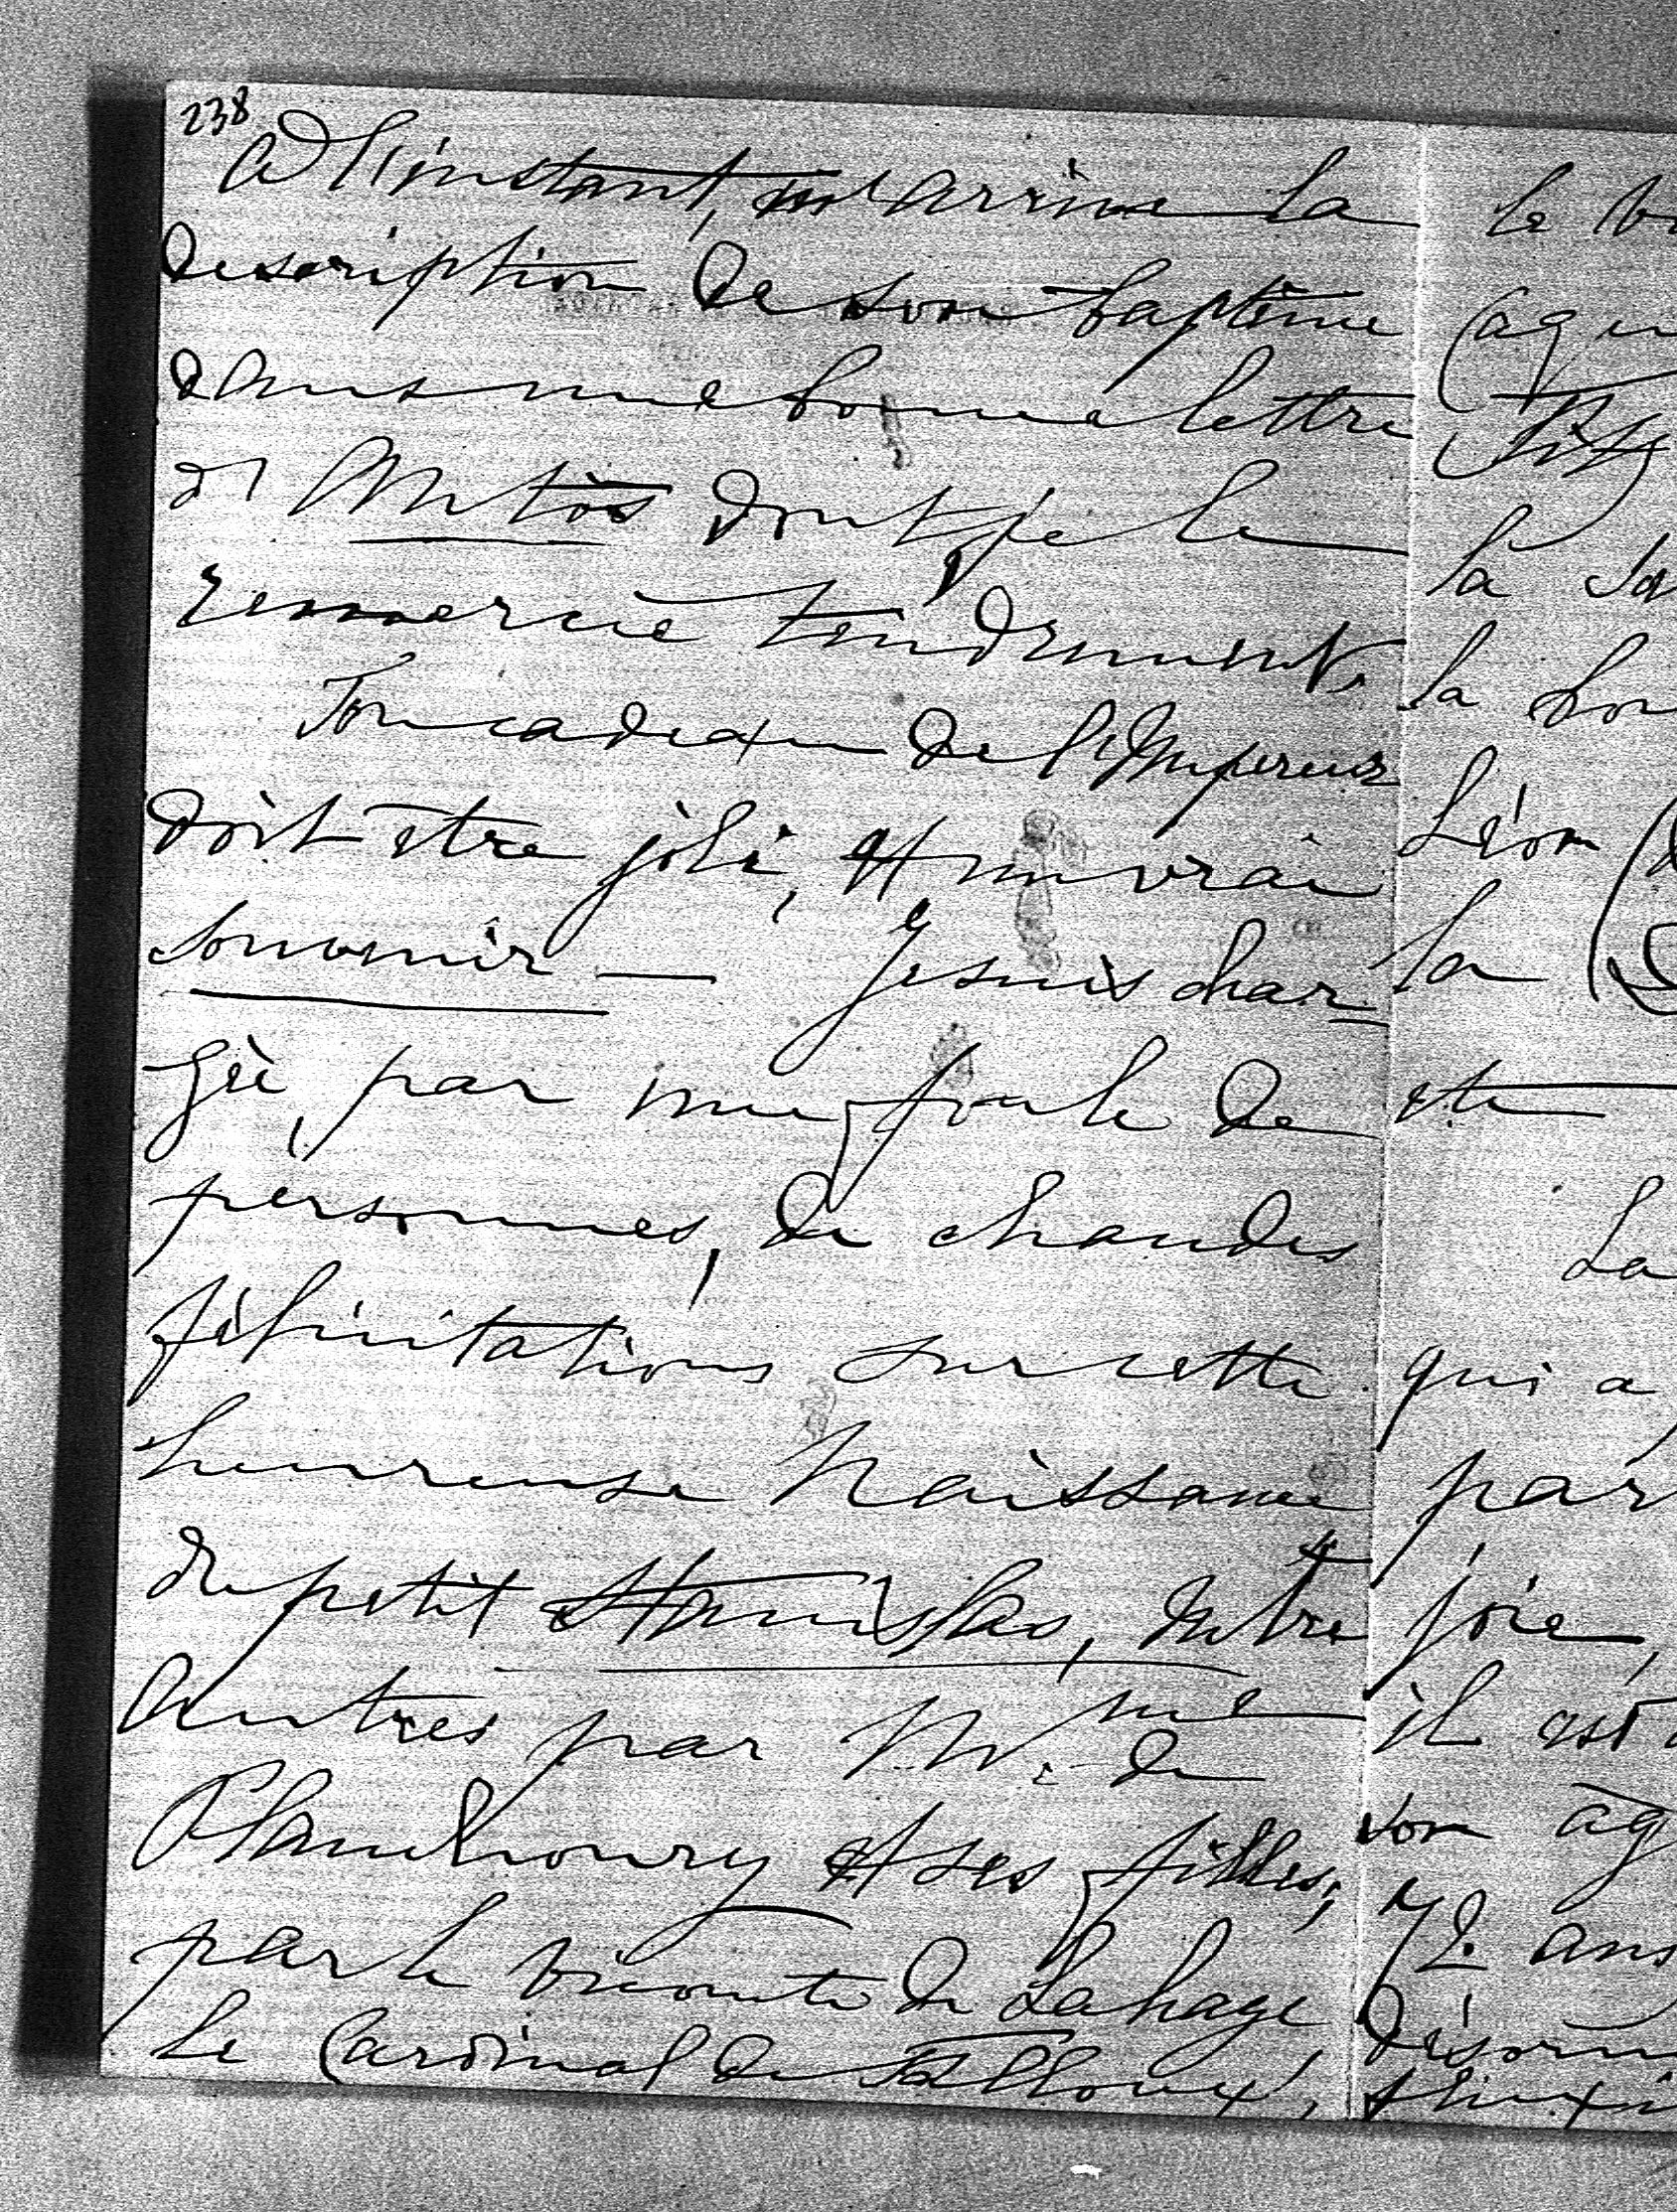 238
A l'instant, m'arrive la
description de son baptême
dans une bonne lettre
d'Antos dont je le
remercie tendrement.
Ton cadeau de l'Empereur
doit être joli, et un vrai
souvenir — Je suis char-
gé, par une foule de
personnes, de chaudes
félicitations sur cette
heureuse Naissance
du petit Stanislas, entre
autres par Mme de
et ses filles,
par le vicomte de Lahaye
le Cardinal de Falloux,
le
la
la
Léon
la
etc
La
qui a
par
joie,
il est
son
72 ans